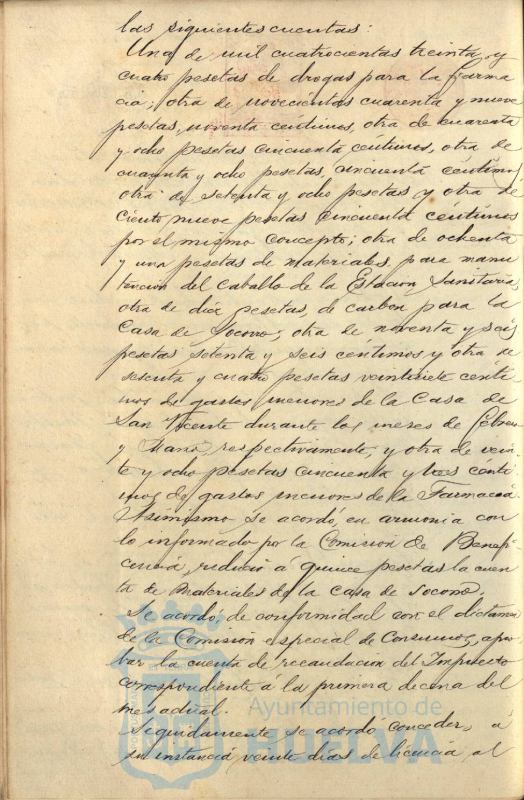 las siguientes cuentas:
Una de mil cuatrocientas treinta y
cuatro pesetas de drogas para la Farma
cia; otra de novecientas cuarenta y nueve
pesetas, noventa céntimos, otra de cuarenta
y ocho pesetas cincuenta céntimos, otra de
cuarenta y ocho pesetas, cincuenta céntimos,
otra de setenta y ocho pesetas y otra de
ciento nueve pesetas cincuenta céntimos
por el mismo concepto; otra de ochenta
y una pesetas de materiales para manu
tencion del caballo de la Estacion Sanitaria,
otra de diez pesetas, de carbon para la
Casa de Socorro, otra de noventa y seis
pesetas setenta y seis céntimos y otra de
sesenta y cuatro pesetas veintisiete centi
mos de gastos menores de la Casa de
San Vicente durante los meses de Febrero
y Marzo, respectivamente, y otra de vein-
te y ocho pesetas cincuenta y tres cénti
mos de gastos menores de la Farmacia
Asimismo se acordó, en armonia con
lo informado por la Comisión de Benefi
cencia, reducir á quince pesetas la cuen
ta de materiales de la Casa de Socorro.
Se acordó, de conformidad con el dictamen
de la Comisión especial de Consumos, apro
bar la cuenta de recaudacion del Impuesto
correspondiente á la primera decena del
mes actual.
Seguidamente se acordó conceder, á
su instancia, veinte dias de licencia al
Ayuntamiento de
HUELVA